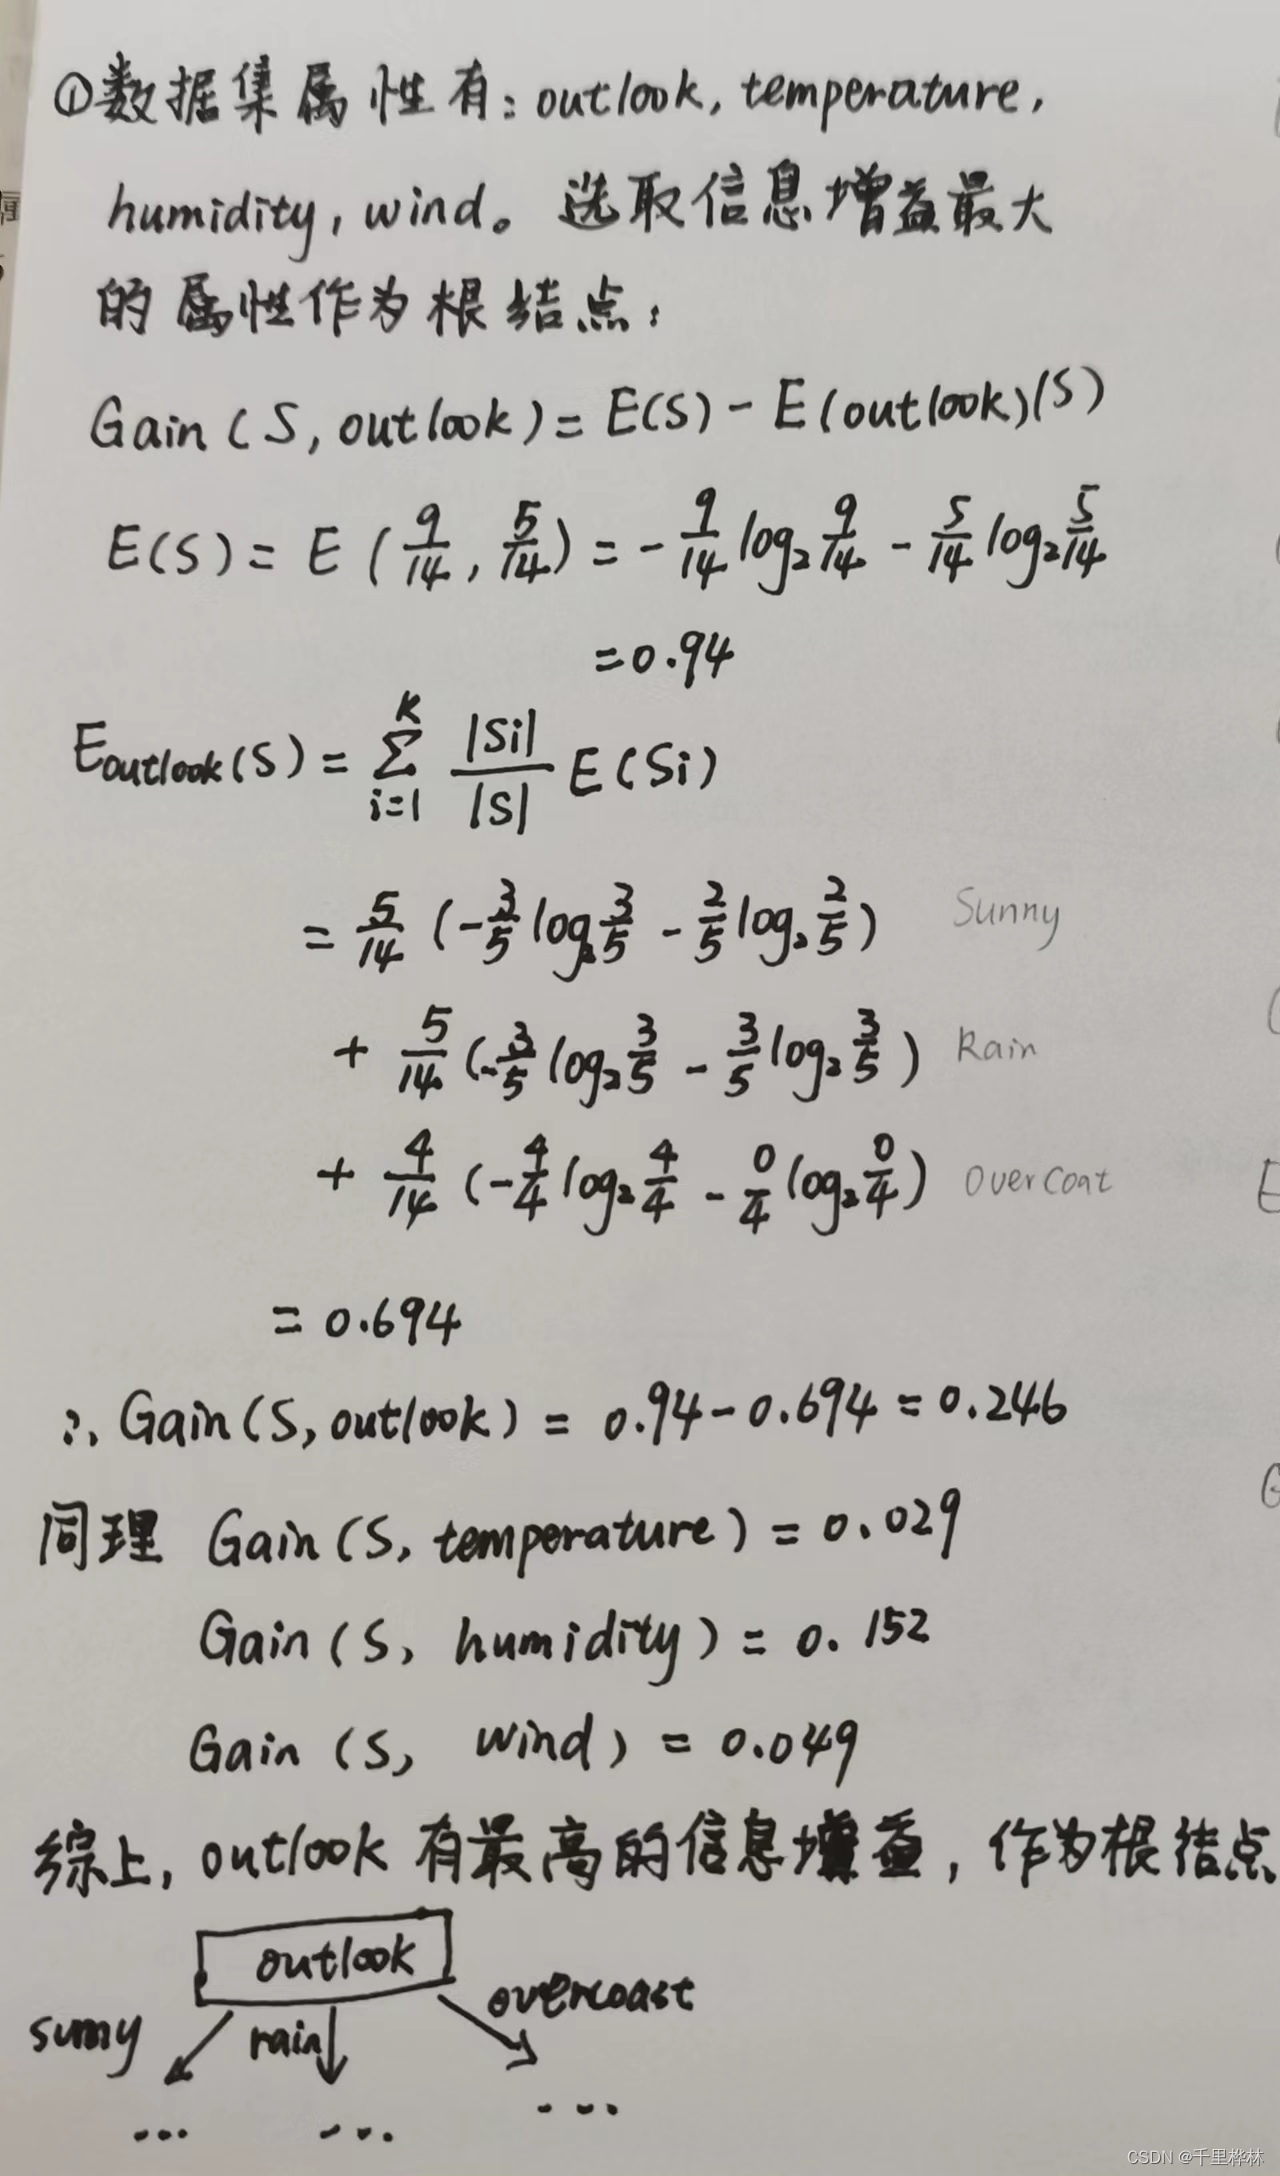 ①数据集属性有：outlook, temperature,
humidity, wind。选取信息增益最大
的属性作为根结点：
Gain(S, outlook) = E(S) - E(outlook)(S)
E(S) = E(9/14, 5/14) = -9/14 log₂ 9/14 - 5/14 log₂ 5/14
=0.94
Eoutlook(S) = ∑ᵢ₌₁ᴷ |Si|/|S| E(Si)
= 5/14 (-3/5 log₂ 3/5 - 2/5 log₂ 2/5) Sunny
+ 5/14 (-3/5 log₂ 3/5 - 3/5 log₂ 3/5) Rain
+ 4/14 (-4/4 log₂ 4/4 - 0/4 log₂ 0/4) Overcoat
= 0.694
∴ Gain(S, outlook) = 0.94 - 0.694 = 0.246
同理 Gain(S, temperature) = 0.029
Gain(S, humidity) = 0.152
Gain(S, wind) = 0.049
综上, outlook 有最高的信息增益, 作为根结点
outlook
sunny rain overcoast
... ... ...
CSDN @千里桦林